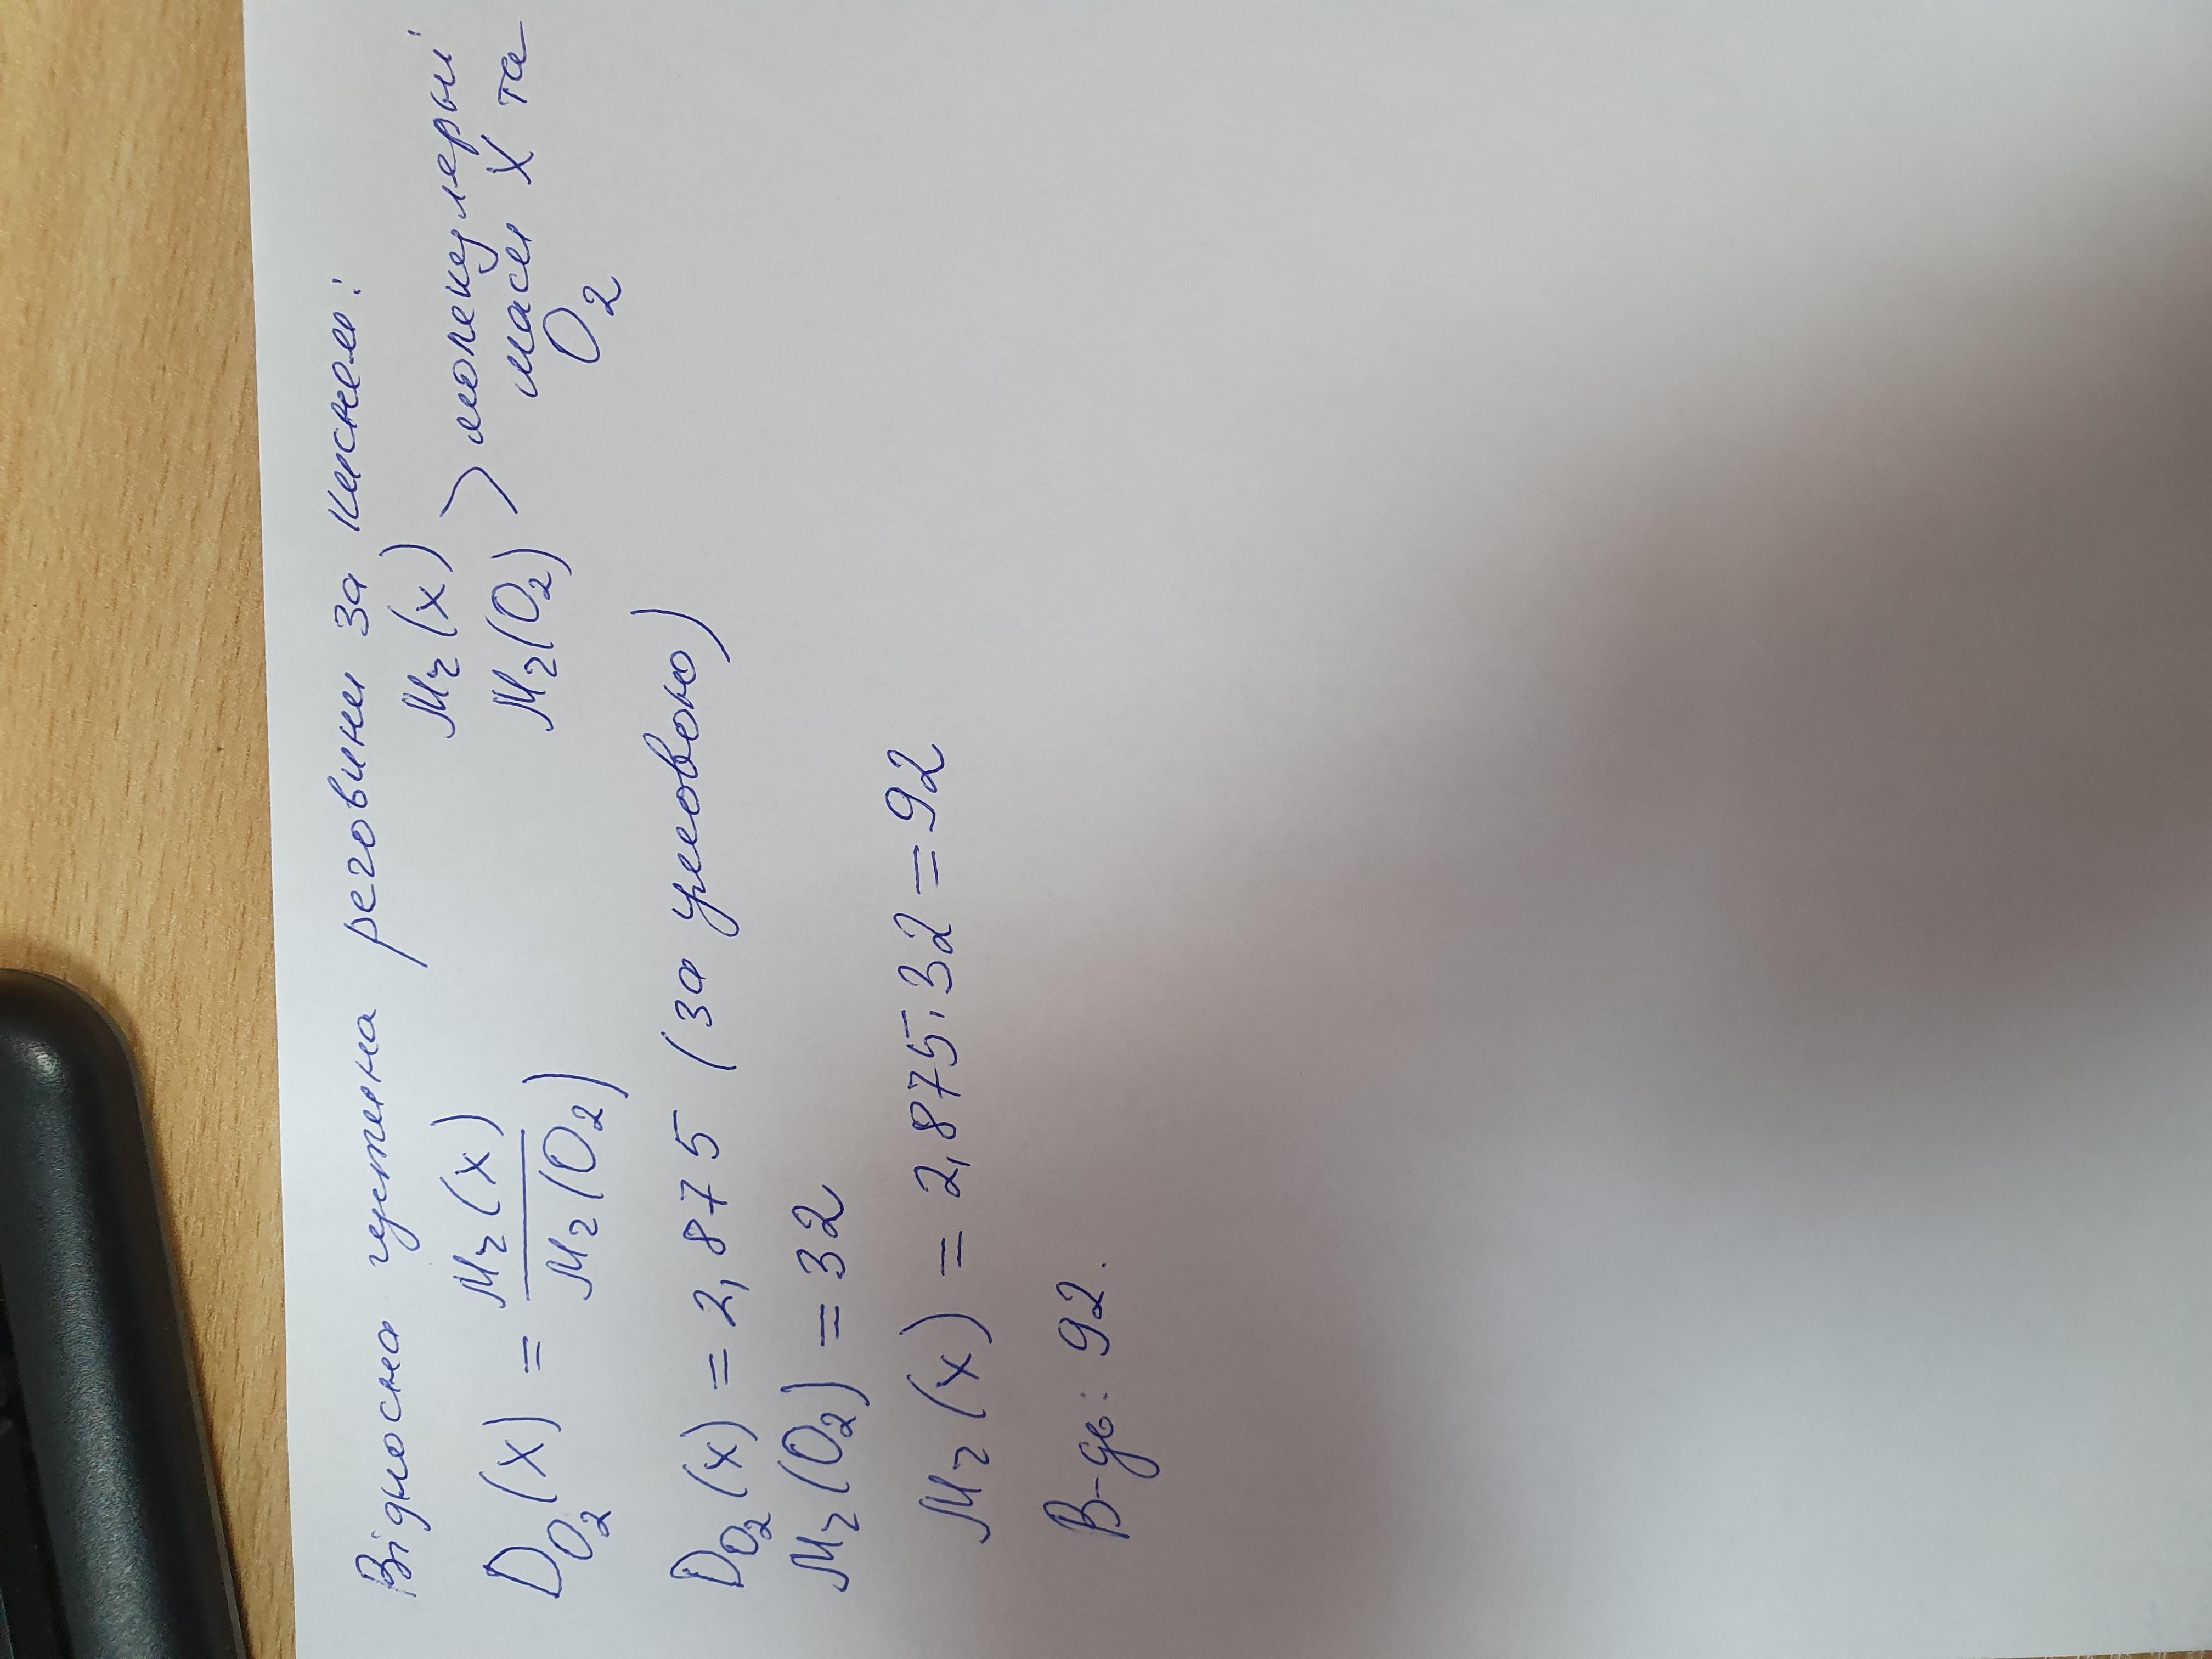 Відносна густина реговини за киснем:
D O₂ (x) = Mr(x) / Mr(O₂)
Mr(x)
Mr(O₂) > молекулярні маси X та O₂
D O₂ (x) = 2,875 (за умовою)
Mr(O₂) = 32
Mr(x) = 2,875·32 = 92
В-дь: 92.